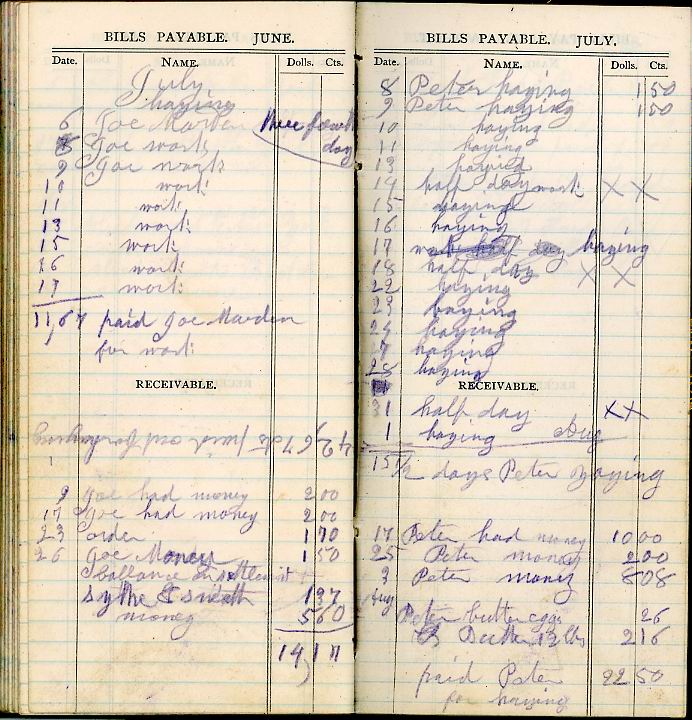 BILLS PAYABLE. JUNE.
Date. NAME. Dolls. Cts.
July
haying
6 Joe Marden three fourth
day
8 Joe work
9 Joe work
10 work
11 work
13 work
15 work
16 work
17 work
11,67 paid Joe Marden
for work
RECEIVABLE.
42,67 cts paid out for haying
9 Joe had money 2 00
17 Joe had money 2 00
23 order 1 70
26 Joe Money 1 50
ballance in settlement
sythe & snath 1 37
money 5 60
14,17
BILLS PAYABLE. JULY.
Date. NAME. Dolls. Cts.
8 Peter haying 1 50
9 Peter haying 1 50
10 haying
11 haying
13 haying
14 half day work X X
15 haying
16 haying
17 day haying
18 half day X X
22 haying
23 haying
24 haying
27 haying
28 haying
RECEIVABLE.
31 half day X X
1 haying Aug
15 1/2 days Peter haying
17 Peter had money 10 00
25 Peter money 2 00
3 Peter money 8 08
Aug
Peter butter eggs 26
12 lbs 2 16
paid Peter 22 50
for haying